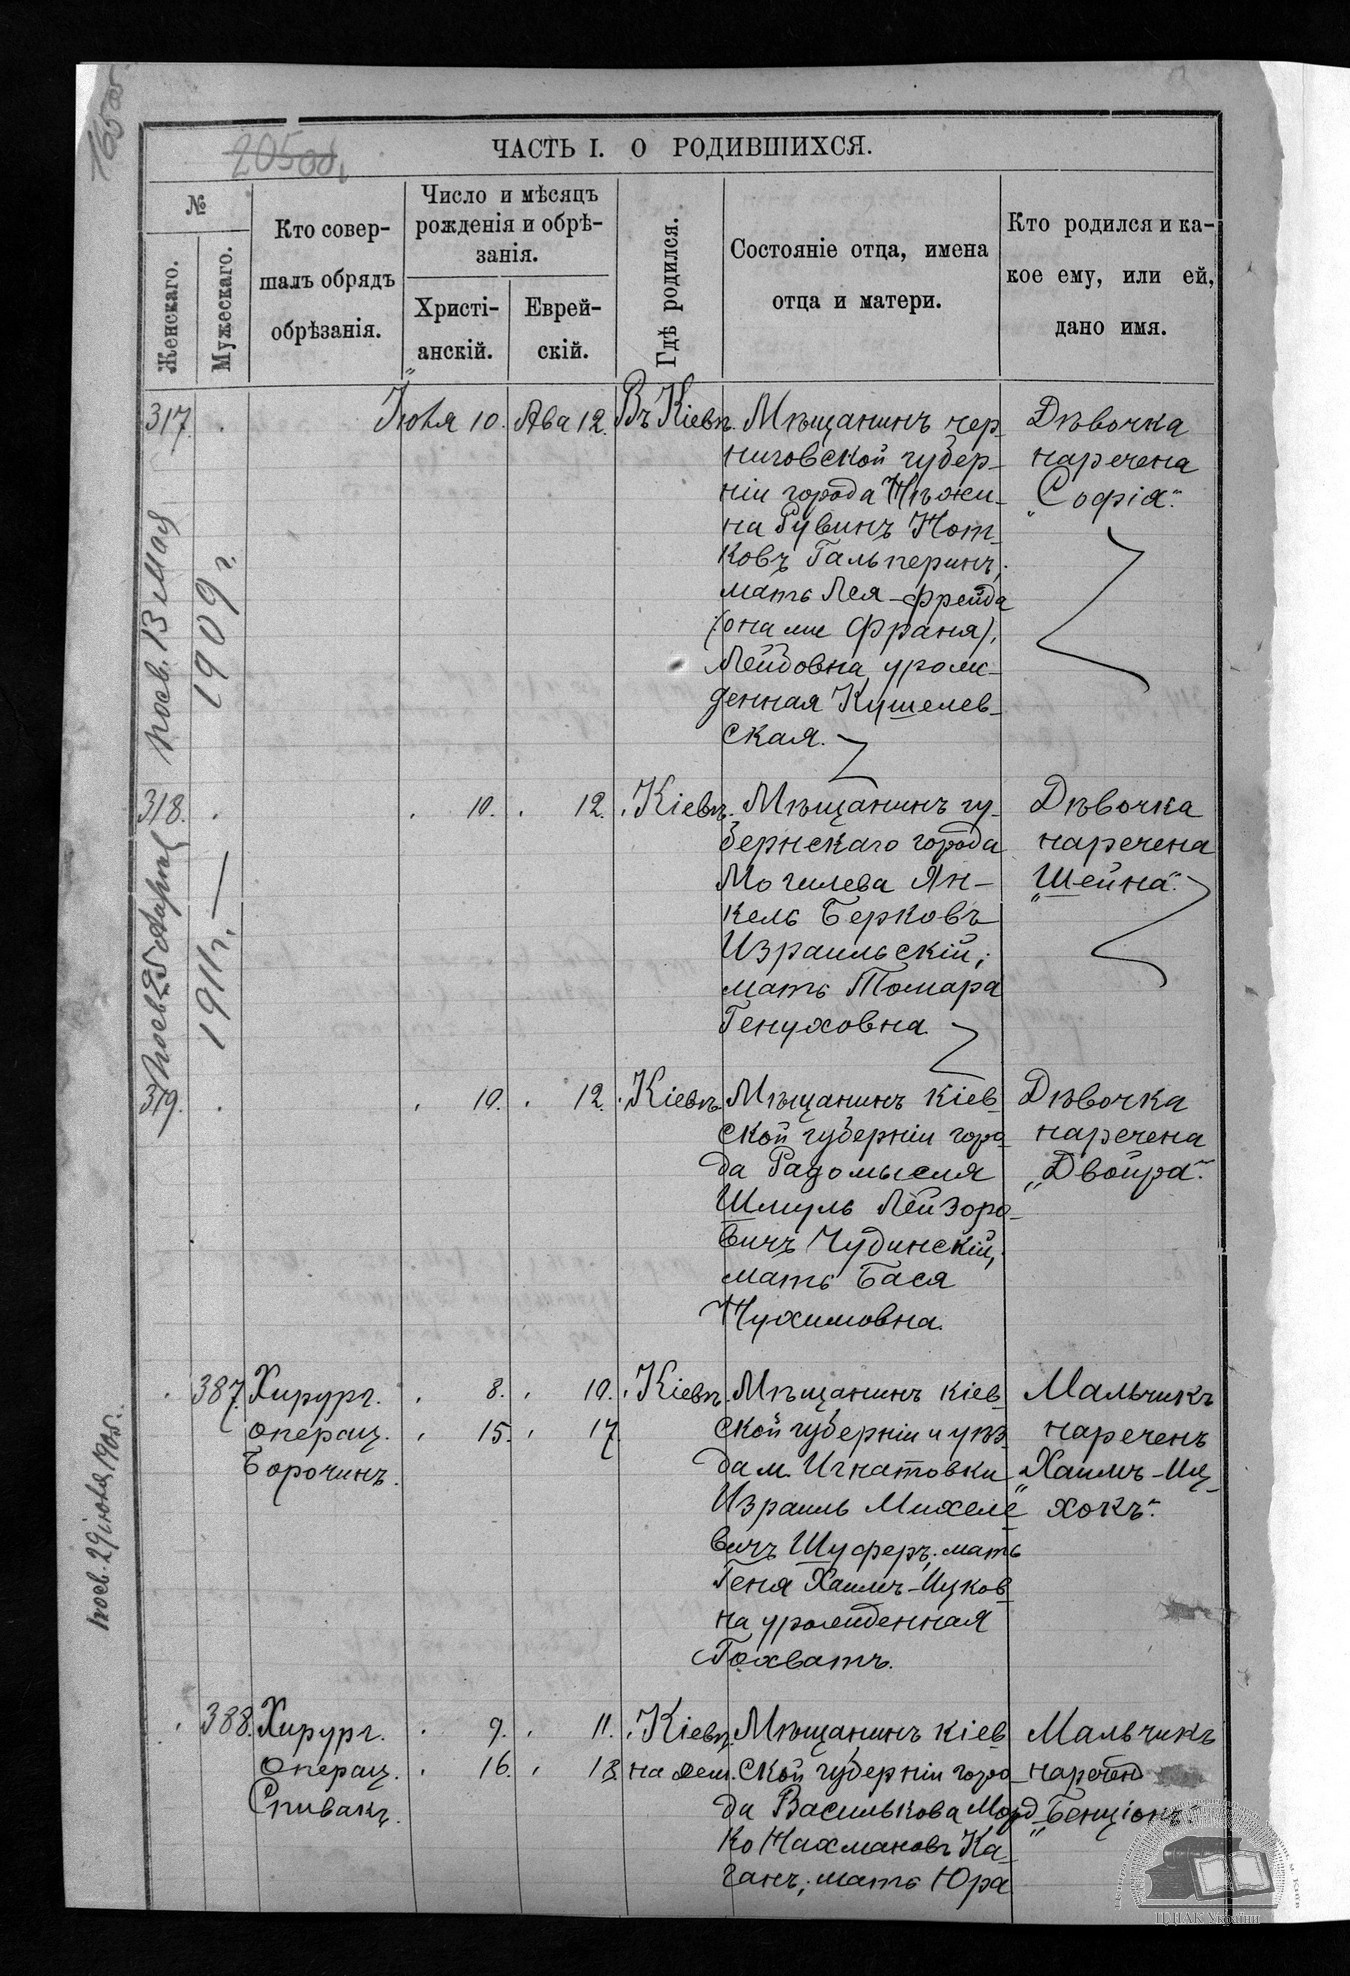 165об.
205об.
ЧАСТЬ I. О РОДИВШИХСЯ.
№
Женскаго.
Мужескаго.
Кто совер-
шалъ обрядъ
обрѣзанія.
Число и мѣсяцъ
рожденія и обрѣ-
занія.
Христі-
анскій.
Еврей-
скій.
Гдѣ родился.
Состояніе отца, имена
отца и матери.
Кто родился и ка-
кое ему, или ей,
дано имя.
317. Іюля 10. Ава 12. Въ Кіевѣ.
Мѣщанинъ чер-
ниговской губер-
ніи города Нѣжи-
на Рувинъ Нот-
ковъ Гальперинъ;
мать Лея-Фрейда
(она же Франя),
Лейбовна урож-
денная Кушелев-
ская.
Дѣвочка
наречена
„Софія“.
посв. 13 мая
1909 г.
318. 10. 12. Кіевѣ.
Мѣщанинъ гу-
бернскаго города
Могилева Ян-
кель Берковъ
Израильскій;
мать Томара
Генуховна
Дѣвочка
наречена
„Шейна“.
1911г.
319. 10. 12. Кіевѣ.
Мѣщанинъ Кіев
ской губерніи горо-
да Радомысля
Шмуль Лейзоро-
вичъ Чудинскій;
мать Бася
Нухимовна.
Дѣвочка
наречена
„Двойра“.
387. Хирург.
операц.
Борочинъ.
8. 10. Кіевѣ.
15. 17.
Мѣщанинъ Кіев
ской губерніи и уѣз-
да м. Игнатовки
Израиль Михеле-
вичъ Шуферъ; мать
Геня Хаимъ-Ицков
на урожденная
Похватъ.
Мальчикъ
нареченъ
„Хаимъ-Иц-
хокъ“.
388. Хирург.
операц.
Спивакъ.
9. 11. Кіевѣ
16. 18. на Дем.
Мѣщанинъ Кіев
ской губерніи горо-
да Василькова Морд-
ко Нахмановъ Ка-
ганъ; мать Юра
Мальчикъ
наречен
„Бенціонъ“.
ЦДІАК України